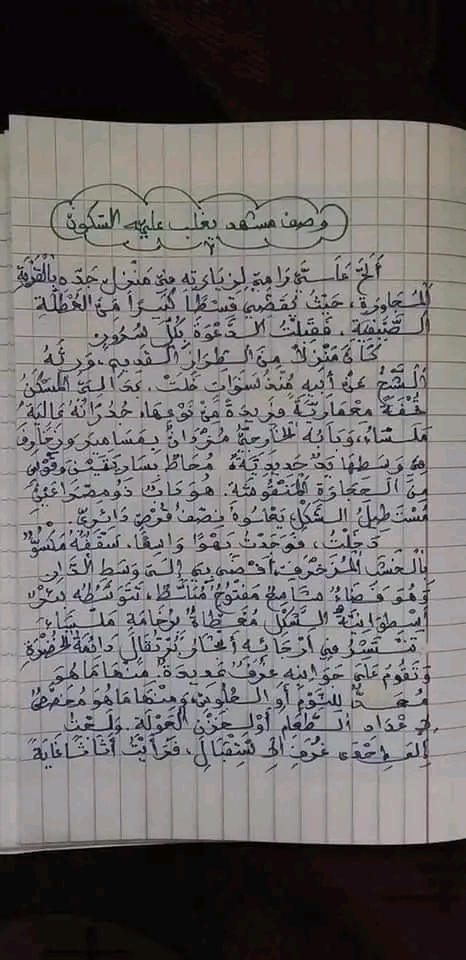 وصف مشهد يغلب عليه السكون
ألحّ عليّ رامي لزيارته في منزل جدّه بالقرية
المجاورة، حيث يقضي قسطا كبيرا من العطلة
الصّيفية، فقبلت الدّعوة بكلّ سرور.
كان منزلا من الطراز القديم، ورثه
الشّيخ عن أبيه منذ سنوات خلت. بدا لي المسكن
تحفة معمارية فريدة من نوعها، جدرانه عالية
ملساء، وبابه الخارجيّ مزدان بمسامير وزخارف
في وسطها يد حديديّة محاط بساريتين وقوس
من الحجارة المنقوشة. هو باب ذو مصراعين
مستطيل الشّكل يعلوه نصف قرص دائريّ.
دخلت، فوجدت بهوا واسعا، سقفه مكسوّ
بالجبس المزخرف أفضى بي إلى وسط الدّار
وهو فضاء مفتوح مبلّط، تتوسّطه بئر
أسطوانيّة الشّكل مغطّاة برخامة ملساء
تنتشر في أرجائه أشجار برتقال دائمة الخضرة
وتقوم على جوانبه غرف عديدة: منها ما هو
معدّ للنّوم أو الجلوس ومنها ما هو مخصّص
لإعداد الطّعام أو لخزن المؤونة. ولجت
إحدى غرف الاستقبال، فرأيت أثاثا غاية